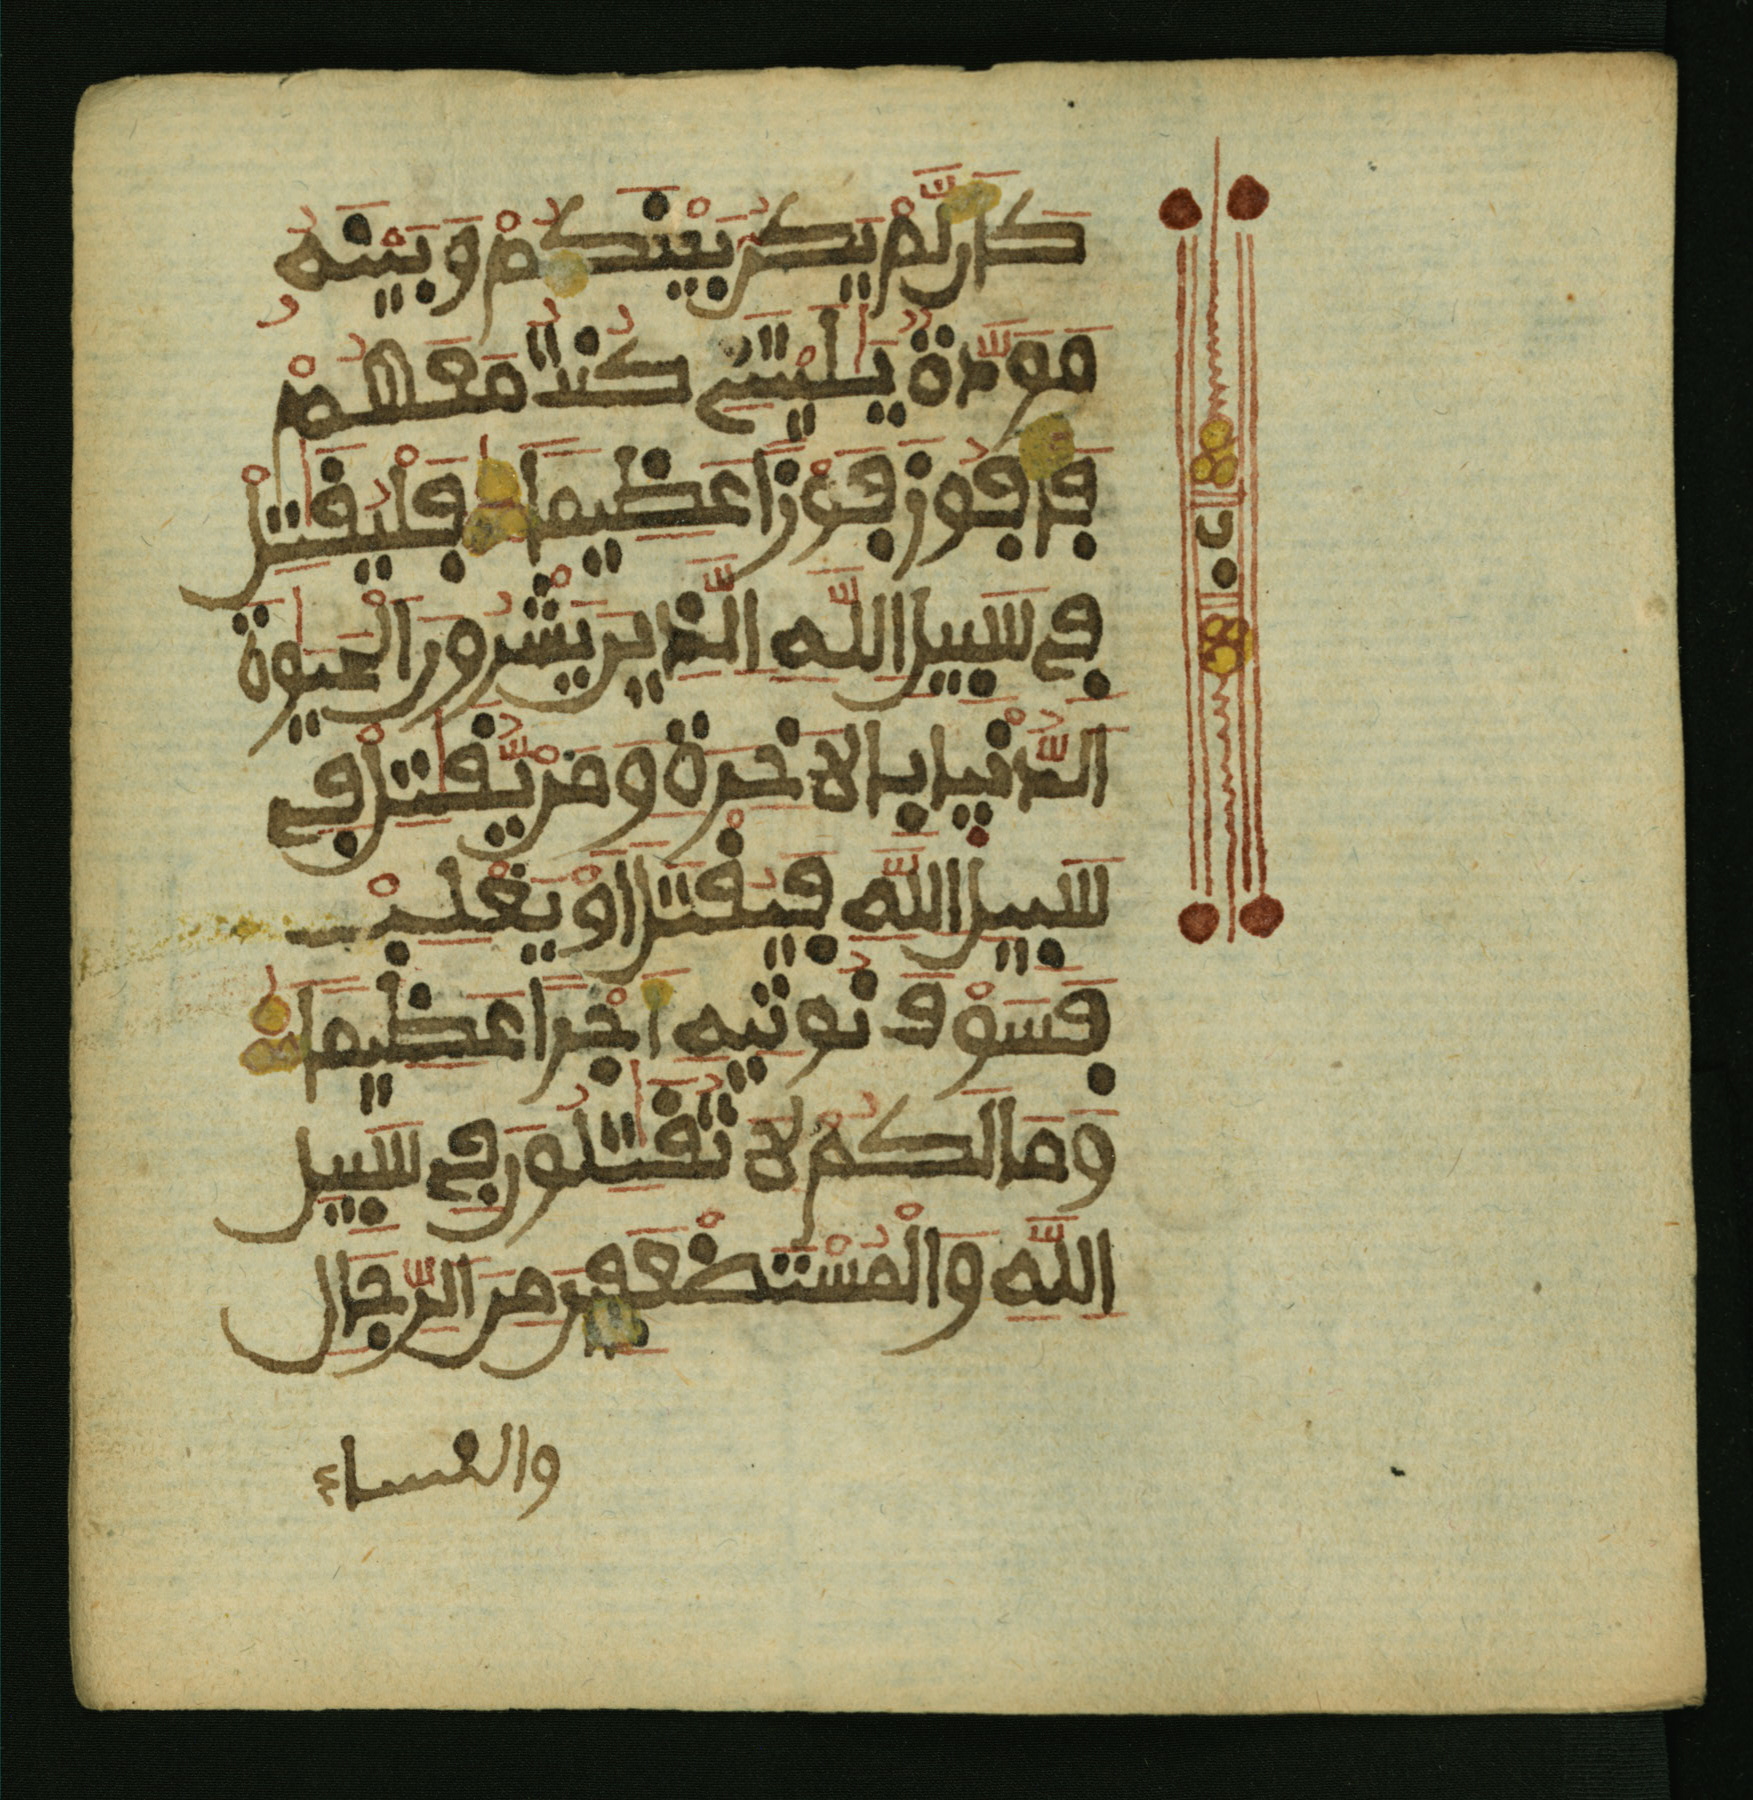 كَأَن لَّمْ يَكُنْ بَيْنَكُمْ وَبَيْنَهُ
مَوَدَّةٌ يَٰلَيْتَنِي كُنتُ مَعَهُمْ
فَأَفُوزَ فَوْزًا عَظِيمًا فَلْيُقَٰتِلْ
فِي سَبِيلِ اللَّهِ الَّذِينَ يَشْرُونَ الْحَيَوٰةَ
الدُّنْيَا بِالَاخِرَةِ وَمَنْ يُّقَٰتِلْ فِي
سَبِيلِ اللَّهِ فَيُقْتَلَ اَوْ يَغْلِبْ
فَسَوْفَ نُوتِيهِ أَجْرًا عَظِيمًا
وَمَا لَكُمْ لَا تُقَٰتِلُونَ فِي سَبِيلِ
اللَّهِ وَالْمُسْتَضْعَفِينَ مِنَ الرِّجَالِ
والنساء